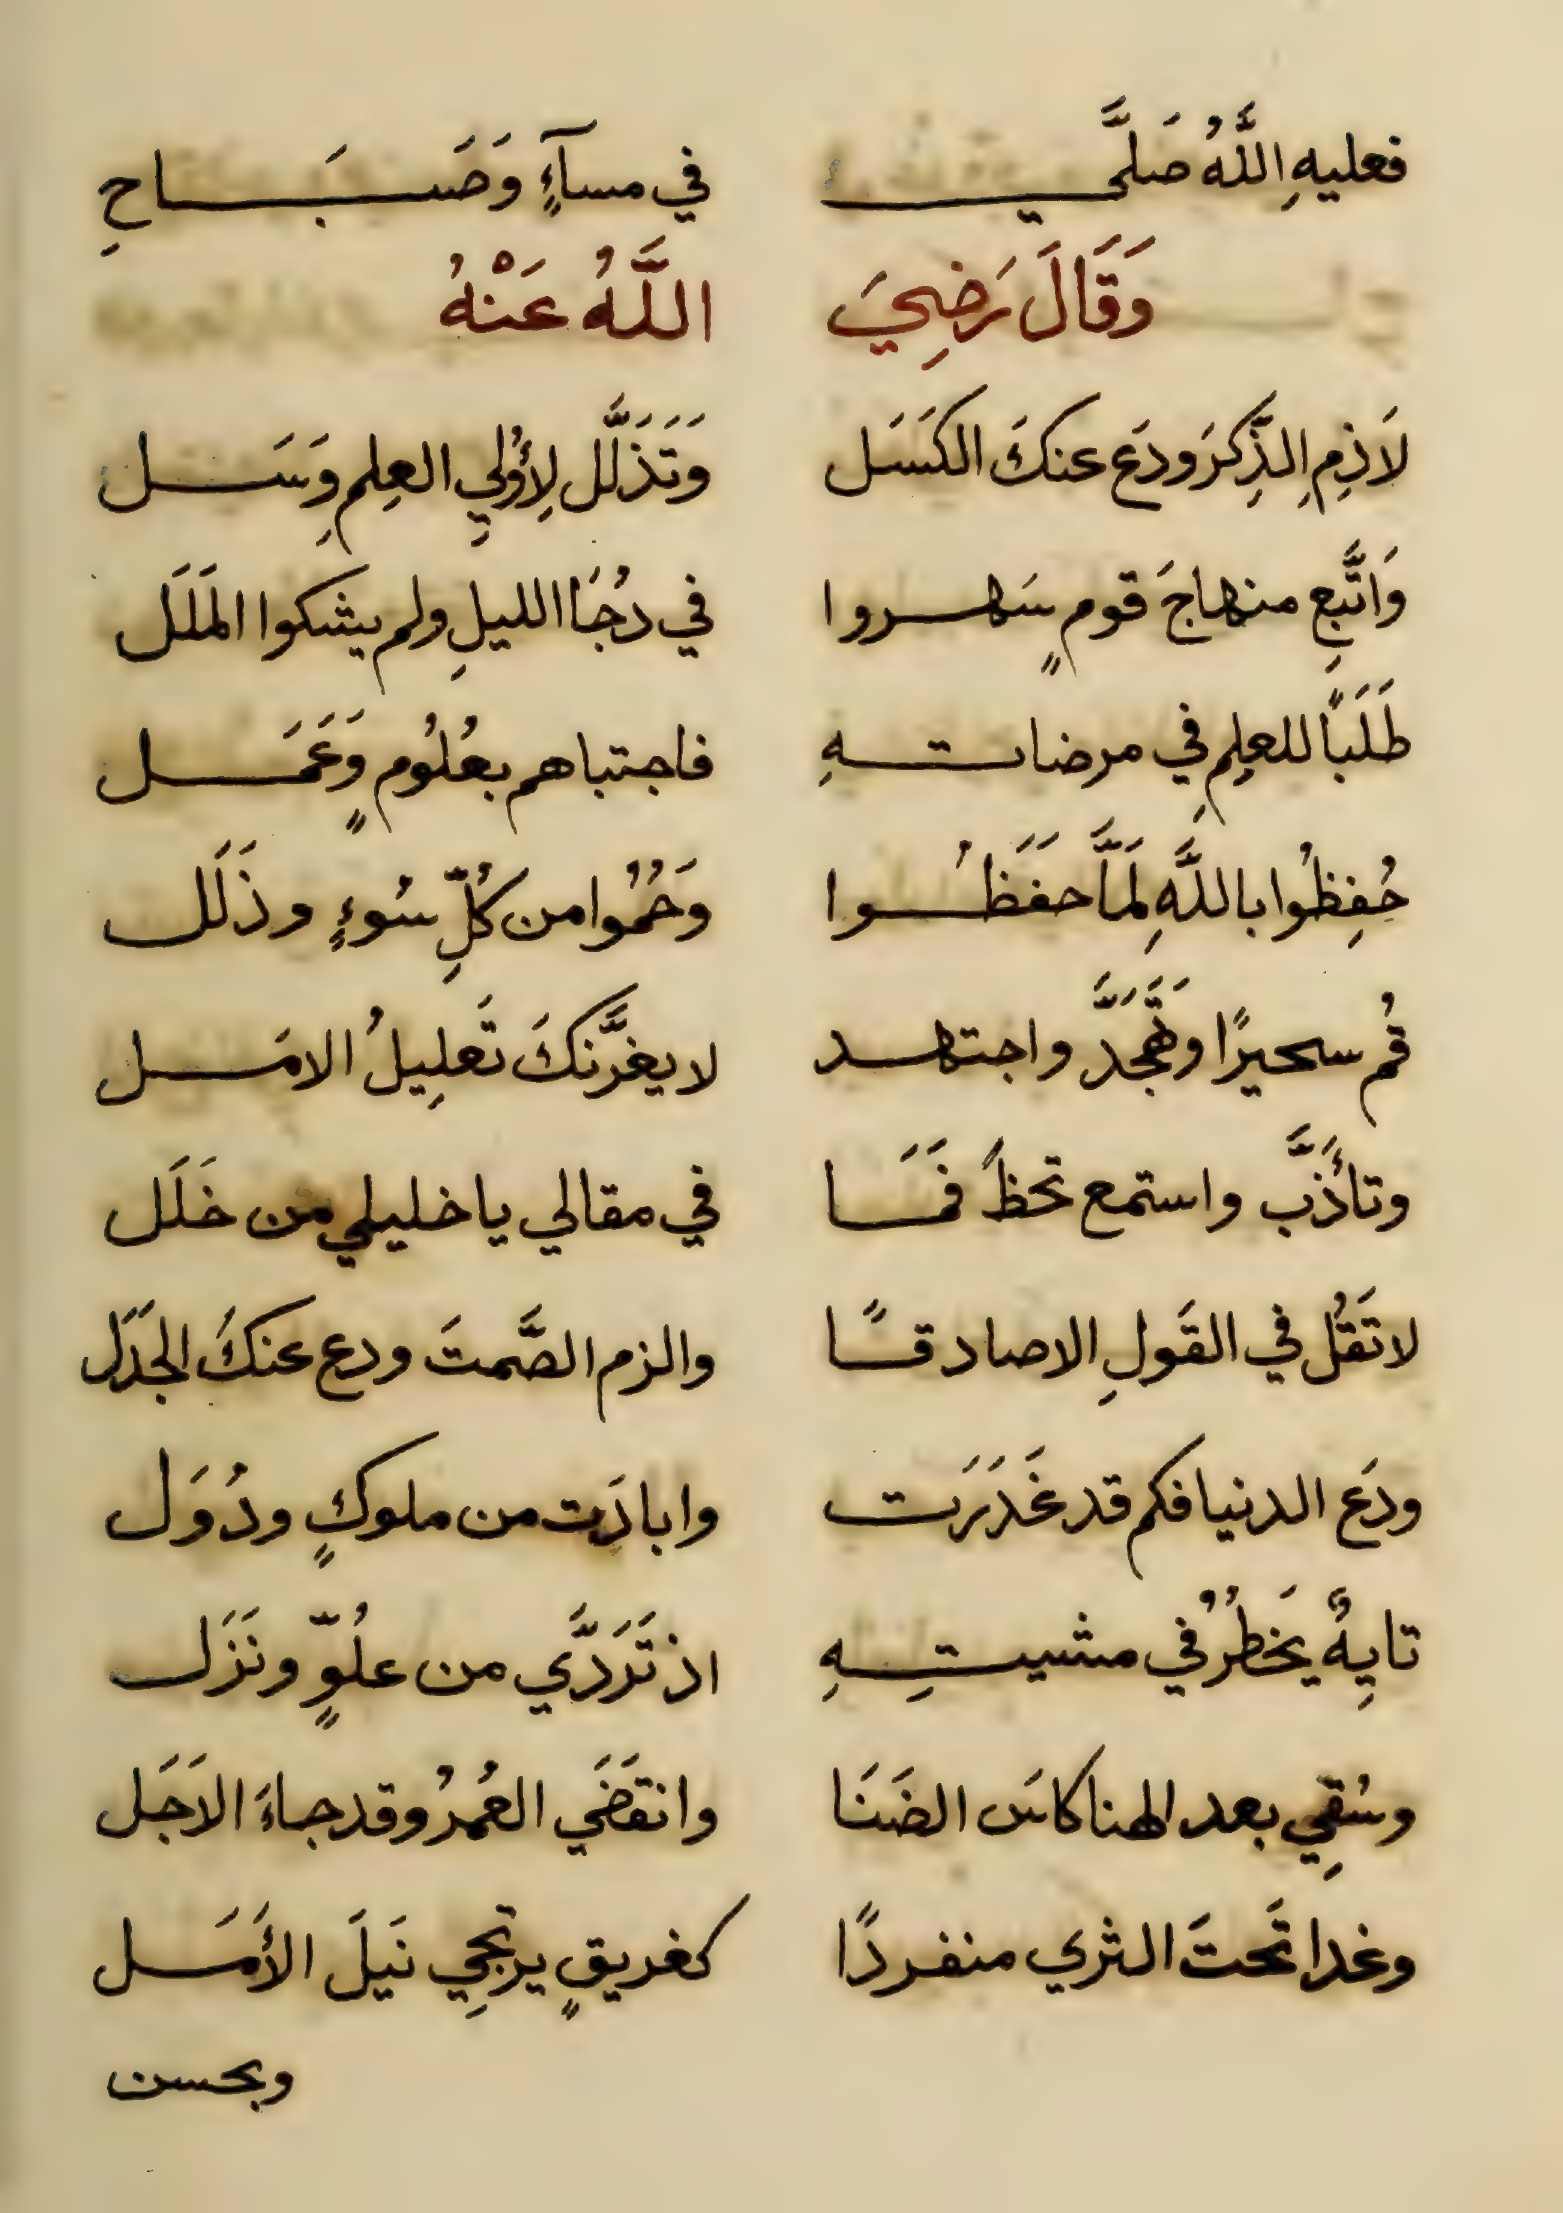 فعليهِ اللَّهُ صَلَّى في مسآءٍ وَصَبَاحِ
وَقَالَ رَضِيَ اللَّهُ عَنْهُ
لَاذِمِ الذِّكرَ ودَع عنكَ الكَسَل وَتَذَلَّل لِأُولي العِلمِ وَسَل
وَاتَّبِع منهاجَ قومٍ سَهروا في دُجَا الليلِ ولم يشكوا المَلَل
طَلَبًا للعِلمِ في مرضاتهِ فاجتباهم بعُلُومٍ وَعَمَل
حُفِظُوا باللَّهِ لَمَّا حفَظُوا وَحُمُوا من كُلِّ سُوءٍ وذَلَل
قُم سحيرًا وتَهَجَّدَّ واجتهد لا يغرَّنكَ تَعلِيلُ الامَل
وتأَذَّب واستمع تحظَ فمَا في مقالي يا خليلي من خَلَل
لا تَقُل في القَولِ الا صادقًا والزم الصَّمتَ ودع عنكَ الجَدَل
ودَع الدنيا فكم قد غَدَرَت وابادَت من ملوكٍ ودُوَل
تايِهٌ يَخطُرُ في مشيتِهِ اذ تَرَدَّي من علُوٍّ ونَزَل
وسُقِي بعد الهنا كاسَ الضَنَا وانقَضَي العُمرُ وقد جاءَ الاَجَل
وغدا تَحتَ الثري منفردًا كغريقٍ يرتجِي نَيلَ الأَمَل
وبحسن